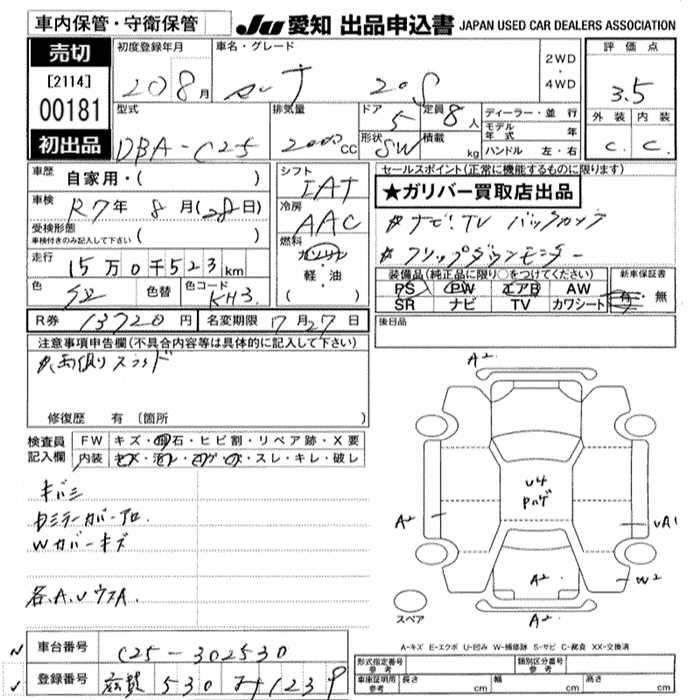 車内保管・守衛保管
JU 愛知 出品申込書 JAPAN USED CAR DEALERS ASSOCIATION
売切
[2114]
00181
初出品
初度登録年月
20 8月
車名・グレード
セレナ 20S
2WD
・
4WD
評価点
3.5
外装 内装
C. C.
型式
DBA-C25
排気量
2000 CC
ドア 5
形状 SW
定員 8 人
積載 kg
ディーラー・並行
モデル年式 年
ハンドル 左・右
車歴 自家用・( )
車検 R7年 8月(28日)
受検形態
車検付きのみ記入して下さい ( )
走行 15万0千523km
色 色替 色コード KH3
シフト
IAT
冷房
AAC
燃料
ガソリン
・
軽・油
( )
セールスポイント(正常に機能するものに限ります)
★ガリバー買取店出品
ナビ.TV バックカメラ
フリップダウンモニター
装備品(純正品に限り○をつけてください)
PS PW エアB AW
SR ナビ TV カワシート
新車保証書
有・無
R券 13720円 名変期限 7月27日
後日品
注意事項申告欄(不具合内容等は具体的に記入して下さい)
両側スライド
修復歴 有 〔箇所
検査員
記入欄
FW キズ・飛石・ヒビ割・リペア跡・X要
内装 キズ・汚レ・コゲ・穴・スレ・キレ・破レ
キバミ
Wカバーキズ
各.A.Uウス A.
A2
U4
Pハゲ
A2
UA1
A2
W2
A2
スペア
A-キズ E-エクボ U-凹み W-補修跡 S-サビ C-腐食 XX-交換済
車台番号 C25-302530
登録番号 滋賀 530 す1239
形式指定番号
参考
類別区分番号
参考
車庫証明用
参考
長さ cm 幅 cm 高さ cm